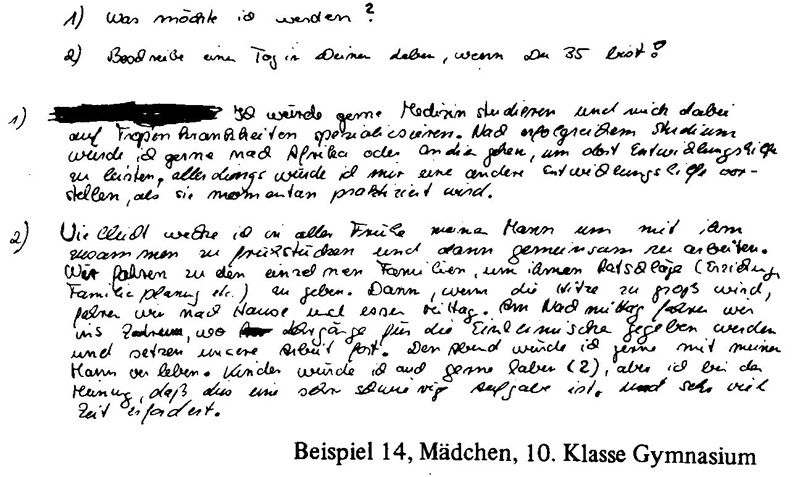 1) Was möchte ich werden?
2) Beschreibe einen Tag in Deinem Leben, wenn Du 35 bist!
1) Ich würde gerne Medizin studieren und mich dabei
auf Tropenkrankheiten spezialisieren. Nach erfolgreichem Studium
würde ich gerne nach Afrika oder Indien gehen, um dort Entwicklungshilfe
zu leisten, allerdings würde ich mir eine andere Entwicklungshilfe vor-
stellen, als sie momentan praktiziert wird.
2) Vielleicht wecke ich in aller Frühe meinen Mann um mit ihm
zusammen zu frühstücken und dann gemeinsam zu arbeiten.
Wir fahren zu den einzelnen Familien, um ihnen Ratschläge (Erziehung,
Familienplanung etc.) zu geben. Dann, wenn die Hitze zu groß wird,
fahren wir nach Hause und essen Mittag. Am Nachmittag fahren wir
ins Zentrum, wo Lehrgänge für die Einheimische gegeben werden
und setzen unsere Arbeit fort. Den Abend würde ich gerne mit meinem
Mann verleben. Kinder würde ich auch gerne haben (2), aber ich bin der
Meinung, daß dies eine sehr schwierige Aufgabe ist und sehr viel
Zeit erfordert.
Beispiel 14, Mädchen, 10. Klasse Gymnasium